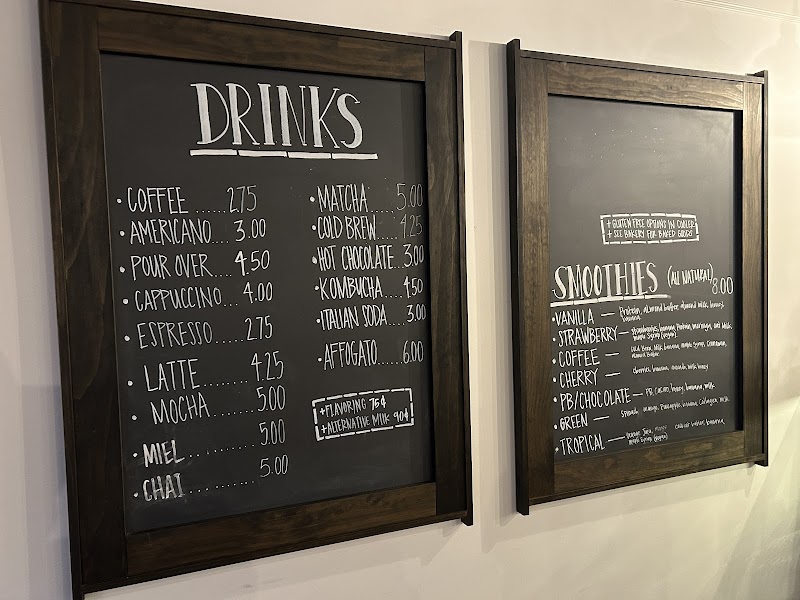 DRINKS
• COFFEE ...... 2.75
• AMERICANO.... 3.00
• POUR OVER... 4.50
• CAPPUCCINO... 4.00
• ESPRESSO ..... 2.75
• LATTE ........ 4.25
• MOCHA....... 5.00
• MIEL.......... 5.00
• CHAI .......... 5.00
• MATCHA..... 5.00
• COLD BREW.... 4.25
• HOT CHOCOLATE...3.00
• KOMBUCHA.... 4.50
• ITALIAN SODA.... 3.00
• AFFOGATO..... 6.00
+ FLAVORING 75¢
+ ALTERNATIVE MILK 90¢
+ GLUTEN FREE OPTIONS IN COOLER
+ SEE BAKERY FOR BAKED GOODS
SMOOTHIES (ALL NATURAL) 8.00
• VANILLA — Protein, almond butter, almond milk, honey,
banana
• STRAWBERRY — strawberries, banana, Protein, oat Milk,
maple Syrup (vegan)
• COFFEE — Cold Brew, Milk, banana, maple Syrup, Cinnamon,
almond Butter
• CHERRY — cherries, banana, milk, honey
• PB/CHOCOLATE — PB, cacao, honey, banana, milk
• GREEN — Spinach, mango, Pineapple, banana, Collagen, milk
• TROPICAL — mango banana,
maple Syrup (vegan)